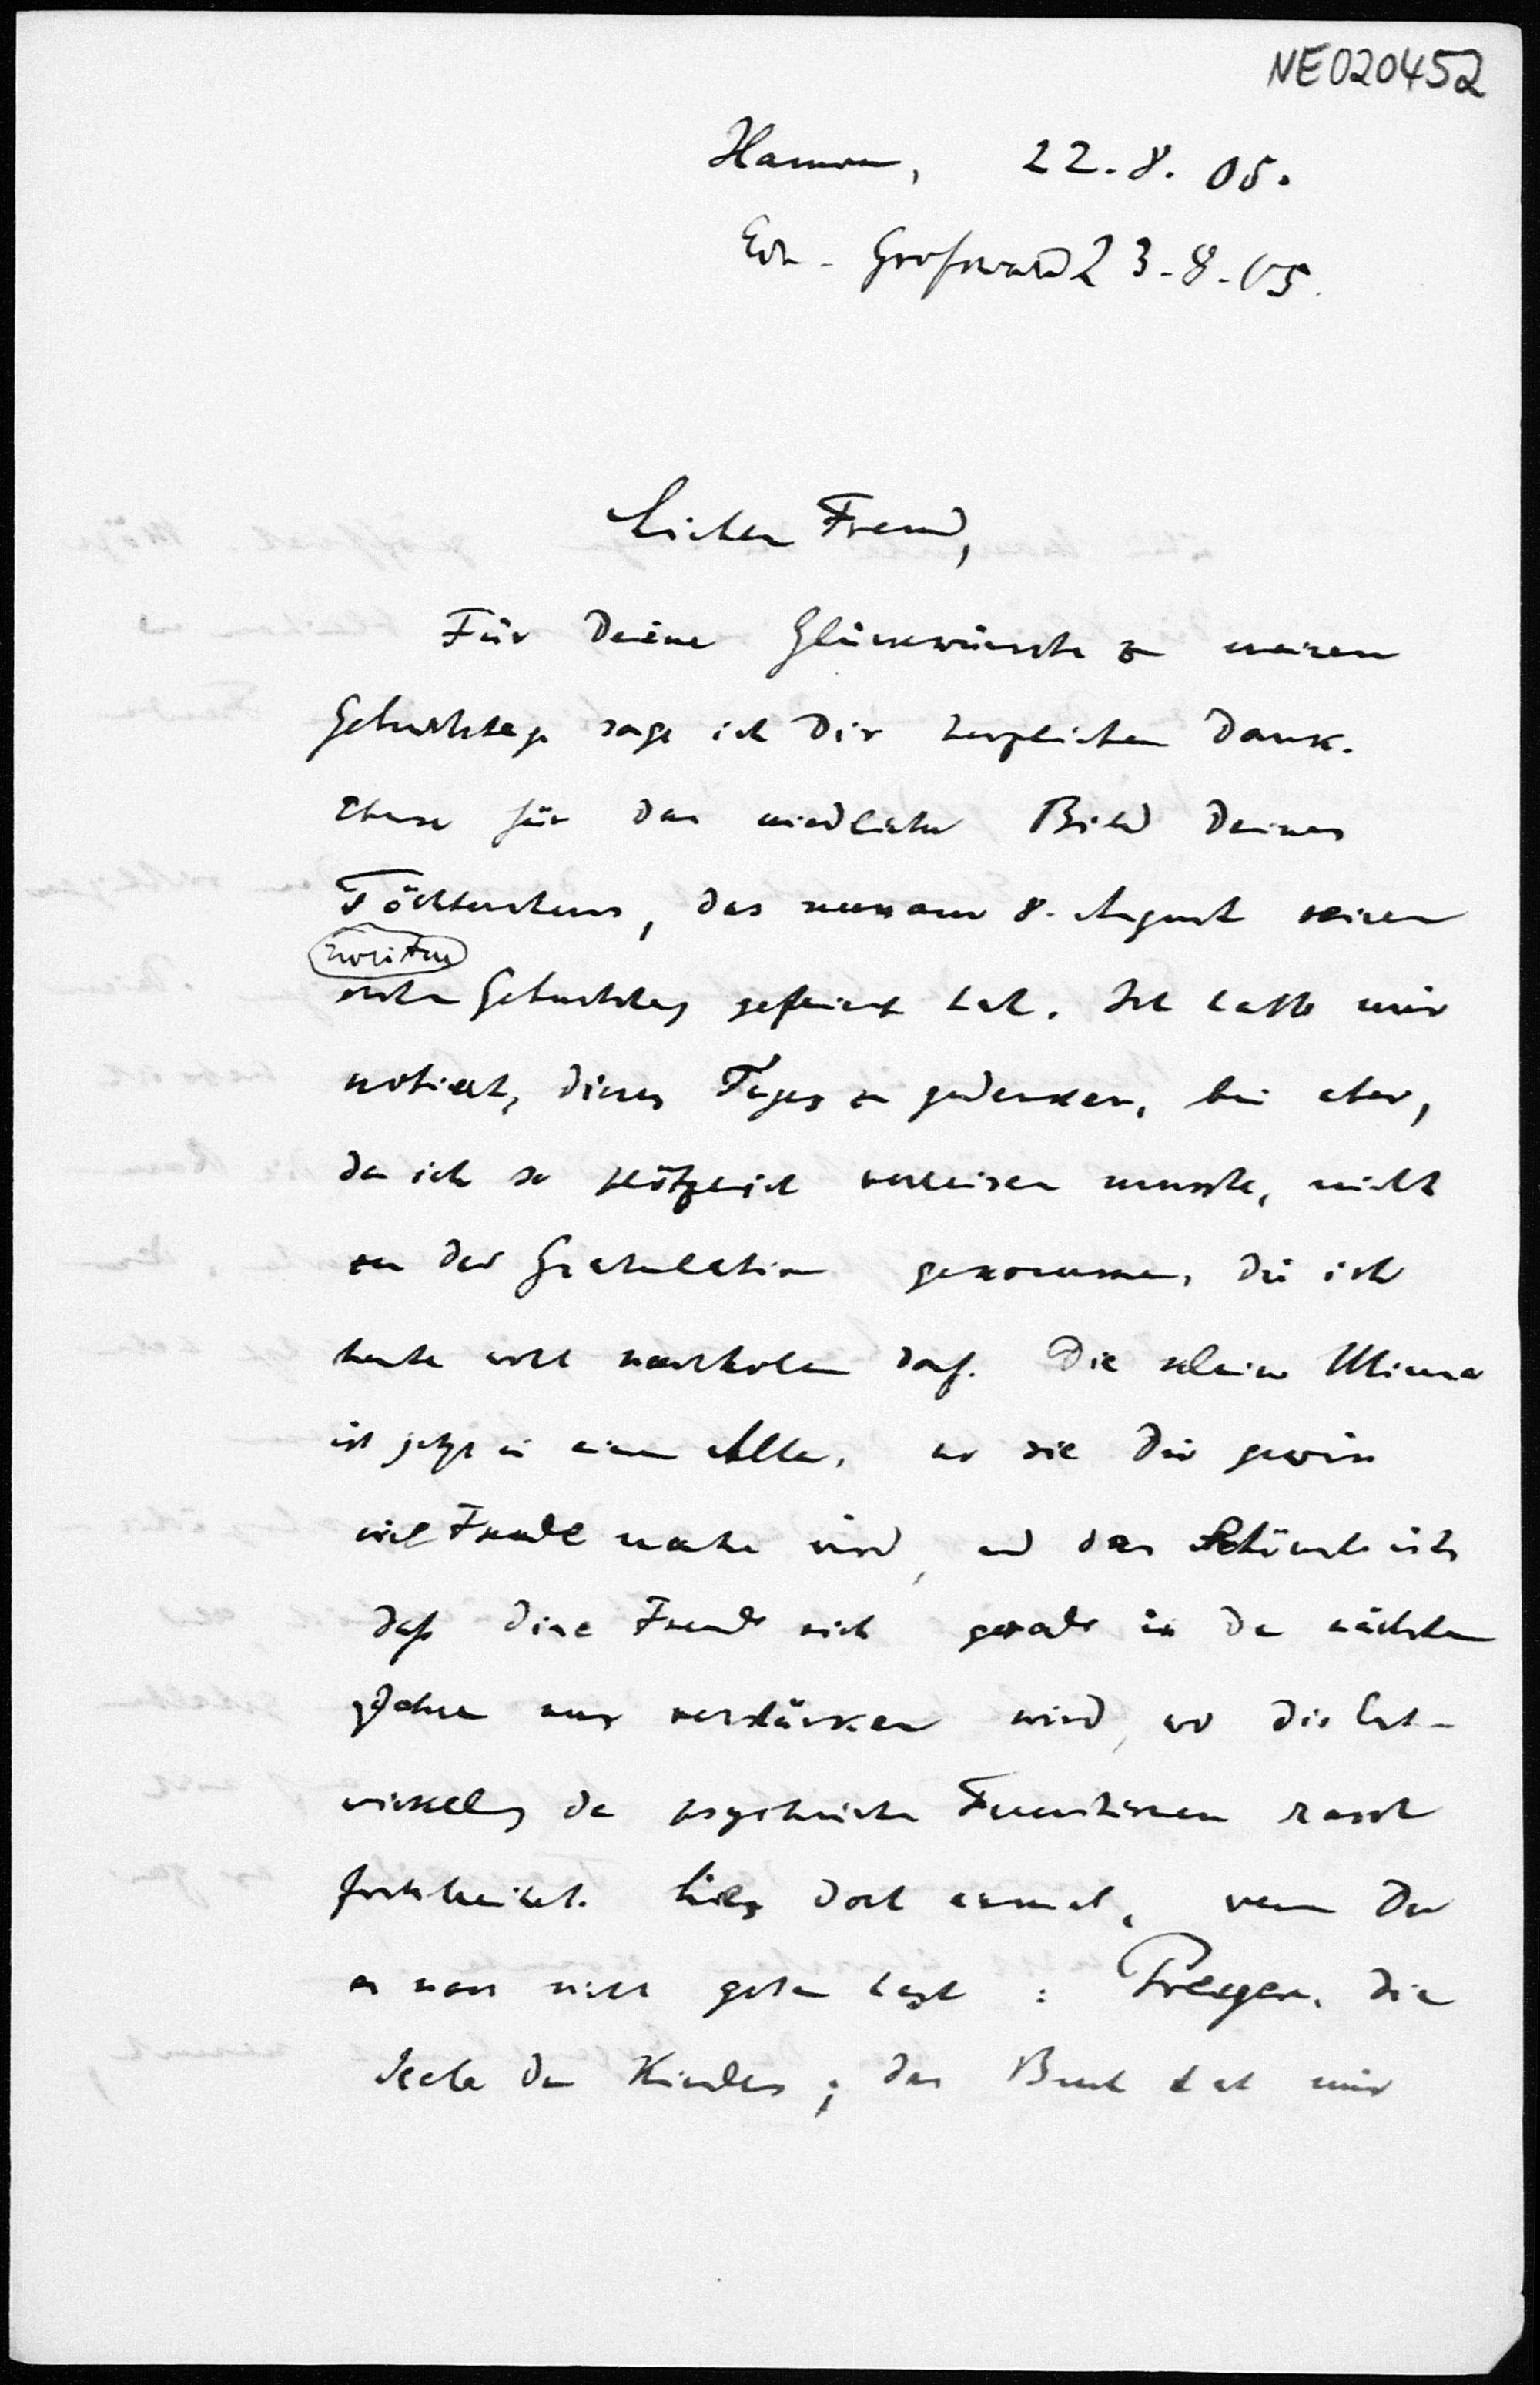 NE020452
Hannover, 22.8.05.
Erh. Grossward 23.8.05.
Lieber Freund,
Für Deine Glückwünsche zu meinem
Geburtstage sage ich Dir herzlichen Dank.
Ebenso für das niedliche Bild Deines
Töchterchens, das nun am 8. August seinen
zweiten
ersten Geburtstag gefeiert hat. Ich hatte mir
notiert, dieses Tages zu gedenken, bin aber,
da ich so plötzlich verreisen musste, nicht
zu der Gratulation gekommen, die ich
heute wohl nachholen darf. Die kleine Minna
ist jetzt in einem Alter, wo sie Dir gewiss
viel Freude machen wird, und das Schönste ist,
daß diese Freude sich gerade in den nächsten
Jahren nur verstärken wird, wo die Ent-
wickelung der psychischen Functionen rasch
fortschreitet. Lies doch einmal, wenn Du
es noch nicht getan hast: Preyer. Die
Seele des Kindes; das Buch hat mir